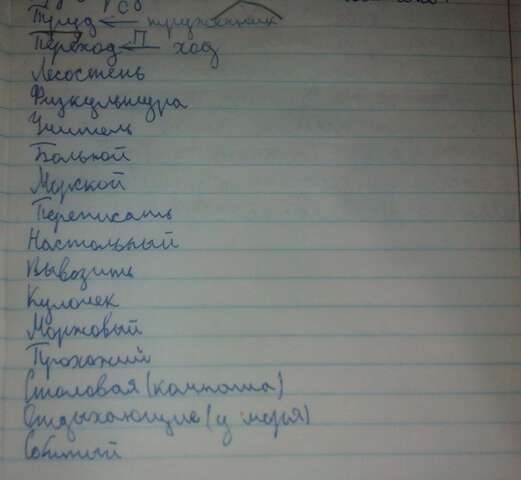 Труд ← С труженник
Переход ← П ход
Лесостепь
Физкультура
Учитель
Больной
Морской
Переписать
Настольный
Вывозить
Кулочек
Моржовый
Прохожий
Столовая (комната)
Отдыхающие (у моря)